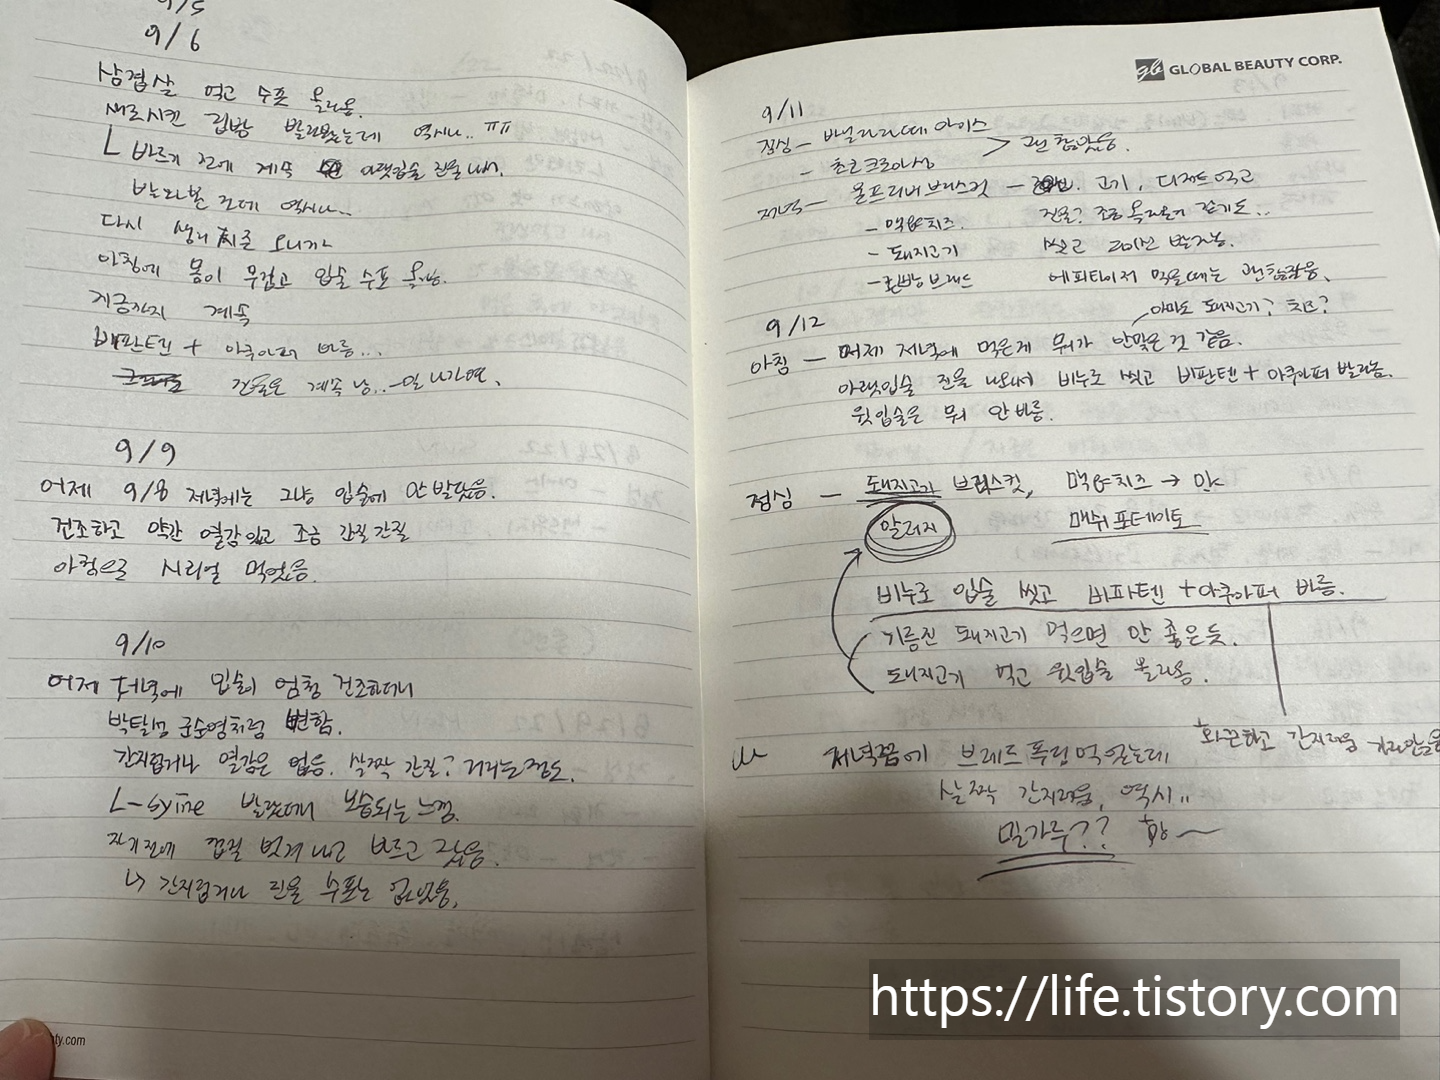 9/5
9/6
삼겹살 먹고 수포 올라옴.
새로시킨 립밤 발라봤는데 역시나.. ㅠㅠ
ㄴ 바르기 전에 계속 아랫입술 진물 나서.
발라본 건데 역시나..
다시 생리 시즌 오니까
아침에 몸이 무겁고 입술 수포 올라옴.
지금까지 계속
비판텐 + 아쿠아퍼 바름...
진물은 계속 남..
9/9
어제 9/8 저녁에는 그냥 입술에 안발랐음.
건조하고 약간 열감있고 조금 간질간질
아침으로 시리얼 먹었음.
9/10
어제 저녁에 입술이 엄청 건조하더니
박탈성 구순염처럼 변함.
간지럽거나 열감은 없음. 살짝 간질? 거리는정도.
L-syine 발랐더니 보습되는 느낌.
자기전에 껍질 벗겨내고 바르고 잤음.
↳ 간지럽거나 진물 수포는 없었음.
GLOBAL BEAUTY CORP.
9/11
점심 - 바닐라라떼 아이스
- 초코크로아상 > 괜찮았음.
저녁 - 울프리버브리스킷 - 고기, 디저트먹고
- 맥앤치즈. 진물? 조금 올라온거 같기도..
- 돼지고기 씻고 발라줌.
- 브레드 에피타이저 먹을때는 괜찮았음.
9/12
아마도 돼지고기? 치즈?
아침 - 어제 저녁에 먹은게 뭐가 안맞은 것 같음.
아랫입술 진물 나와서 비누로 씻고 비판텐 + 아쿠아퍼 발라줌.
윗입술은 뭐 안바름.
점심 - 돼지고기 브리스킷, 맥앤치즈 →
알러지 매쉬포테이토
비누로 입술 씻고 비판텐 + 아쿠아퍼 바름.
기름진 돼지고기 먹으면 안 좋은듯.
돼지고기 먹고 윗입술 올라옴.
화끈하고 간지러움
저녁쯤에 브레드푸딩먹었는데
살짝 간지러움, 역시..
밀가루??
ty.com
https://life.tistory.com